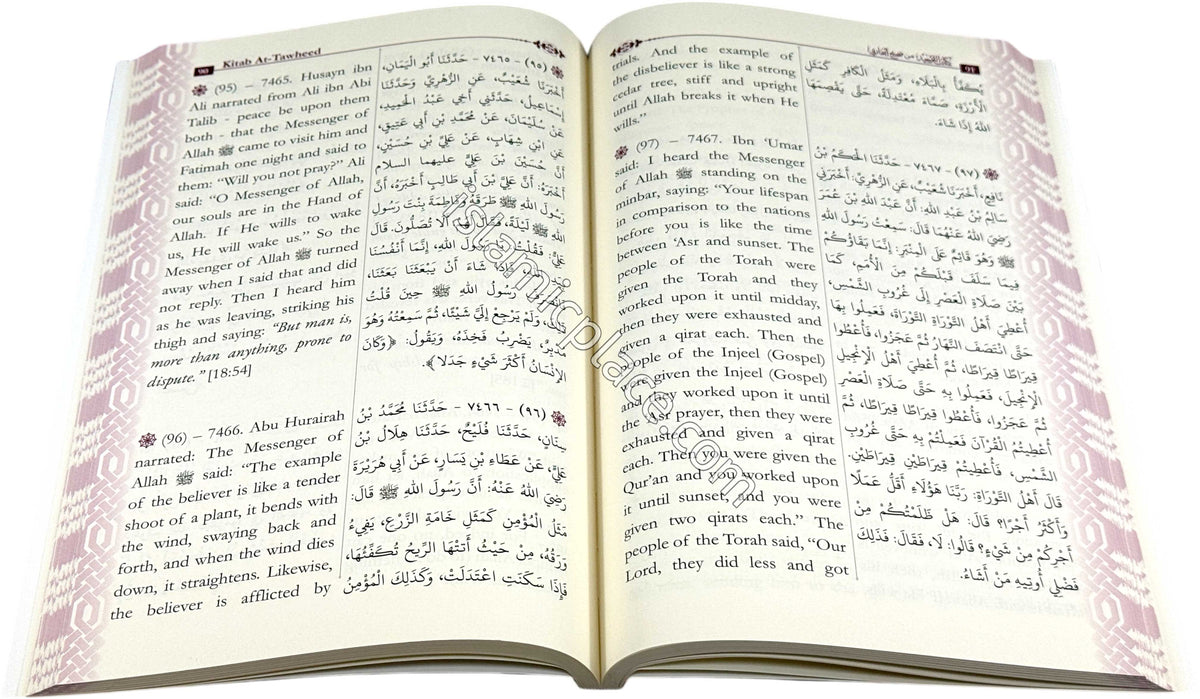 ٩٥
Kitab At-Tawheed
(95) – 7465. Husayn ibn
Ali narrated from Ali ibn Abi
Talib - peace be upon them
both - that the Messenger of
Allah ﷺ came to visit him and
Fatimah one night and said to
them: “Will you not pray?” Ali
said: “O Messenger of Allah,
our souls are in the Hand of
Allah. If He wills to wake
us, He will wake us.” So the
Messenger of Allah ﷺ turned
away when I said that and did
not reply. Then I heard him
as he was leaving, striking his
thigh and saying: “But man is,
more than anything, prone to
dispute.” [18:54]
(96) – 7466. Abu Hurairah
narrated: The Messenger of
Allah ﷺ said: “The example
of the believer is like a tender
shoot of a plant, it bends with
the wind, swaying back and
forth, and when the wind dies
down, it straightens. Likewise,
the believer is afflicted by
(٩٥) - ٧٤٦٥ - حَدَّثَنَا أَبُو الْيَمَانِ،
أَخْبَرَنَا شُعَيْبٌ، عَنِ الزُّهْرِيِّ وَحَدَّثَنَا
إِسْمَاعِيلُ، حَدَّثَنِي أَخِي عَبْدُ الْحَمِيدِ،
عَنْ سُلَيْمَانَ، عَنْ مُحَمَّدِ بْنِ أَبِي عَتِيقٍ،
عَنِ ابْنِ شِهَابٍ، عَنْ عَلِيِّ بْنِ حُسَيْنٍ،
أَنَّ حُسَيْنَ بْنَ عَلِيٍّ عليهما السلام
أَخْبَرَهُ: أَنَّ عَلِيَّ بْنَ أَبِي طَالِبٍ أَخْبَرَهُ، أَنَّ
رَسُولَ اللهِ ﷺ طَرَقَهُ وَفَاطِمَةَ بِنْتَ رَسُولِ
اللهِ ﷺ لَيْلَةً، فَقَالَ لَهُمْ أَلَا تُصَلُّونَ. قَالَ
عَلِيٌّ: فَقُلْتُ يَا رَسُولَ اللهِ، إِنَّمَا أَنْفُسُنَا
فَإِذَا شَاءَ أَنْ يَبْعَثَنَا بَعَثَنَا،
رَسُولُ اللهِ ﷺ حِينَ قُلْتُ
ذَلِكَ، وَلَمْ يَرْجِعْ إِلَيَّ شَيْئًا، ثُمَّ سَمِعْتُهُ وَهُوَ
مُدْبِرٌ، يَضْرِبُ فَخِذَهُ، وَيَقُولُ: ﴿وَكَانَ
الإِنْسَانُ أَكْثَرَ شَيْءٍ جَدَلًا﴾.
(٩٦) - ٧٤٦٦ - حَدَّثَنَا مُحَمَّدُ بْنُ
سِنَانٍ، حَدَّثَنَا فُلَيْحٌ، حَدَّثَنَا هِلَالُ بْنُ
عَلِيٍّ، عَنْ عَطَاءِ بْنِ يَسَارٍ، عَنْ أَبِي هُرَيْرَةَ
رَضِيَ اللهُ عَنْهُ: أَنَّ رَسُولَ اللهِ ﷺ قَالَ:
مَثَلُ الْمُؤْمِنِ كَمَثَلِ خَامَةِ الزَّرْعِ، يَفِيءُ
وَرَقُهُ، مِنْ حَيْثُ أَتَتْهَا الرِّيحُ تُكَفِّئُهَا،
فَإِذَا سَكَنَتِ اعْتَدَلَتْ، وَكَذَلِكَ الْمُؤْمِنُ
٩٦
trials. And the example of
the disbeliever is like a strong
cedar tree, stiff and upright
until Allah breaks it when He
wills.”
(97) – 7467. Ibn ‘Umar
said: I heard the Messenger
of Allah ﷺ standing on the
minbar, saying: “Your lifespan
in comparison to the nations
before you is like the time
between ‘Asr and sunset. The
people of the Torah were
given the Torah and they
worked upon it until midday,
then they were exhausted and
given a qirat each. Then the
people of the Injeel (Gospel)
were given the Injeel (Gospel)
and they worked upon it until
the ‘Asr prayer, then they were
exhausted and given a qirat
each. Then you were given the
Qur’an and you worked upon
it until sunset, and you were
given two qirats each.” The
people of the Torah said, “Our
Lord, they did less and got
يُكَفَّأُ بِالْبَلَاءِ، وَمَثَلُ الْكَافِرِ كَمَثَلِ
الْأَرْزَةِ، صَمَّاءَ مُعْتَدِلَةً، حَتَّى يَقْصِمَهَا
اللهُ إِذَا شَاءَ.
(٩٧) - ٧٤٦٧ - حَدَّثَنَا الْحَكَمُ بْنُ
نَافِعٍ، أَخْبَرَنَا شُعَيْبٌ، عَنِ الزُّهْرِيِّ: أَخْبَرَنِي
سَالِمُ بْنُ عَبْدِ اللهِ: أَنَّ عَبْدَ اللهِ بْنَ عُمَرَ
رَضِيَ اللهُ عَنْهُمَا قَالَ: سَمِعْتُ رَسُولَ اللهِ
ﷺ وَهُوَ قَائِمٌ عَلَى الْمِنْبَرِ: إِنَّمَا بَقَاؤُكُمْ
فِيمَا سَلَفَ قَبْلَكُمْ مِنَ الْأُمَمِ، كَمَا
بَيْنَ صَلَاةِ الْعَصْرِ إِلَى غُرُوبِ الشَّمْسِ،
أُعْطِيَ أَهْلُ التَّوْرَاةِ التَّوْرَاةَ، فَعَمِلُوا بِهَا
حَتَّى انْتَصَفَ النَّهَارُ ثُمَّ عَجَزُوا، فَأُعْطُوا
قِيرَاطًا قِيرَاطًا، ثُمَّ أُعْطِيَ أَهْلُ الْإِنْجِيلِ
الْإِنْجِيلَ، فَعَمِلُوا بِهِ حَتَّى صَلَاةِ الْعَصْرِ
ثُمَّ عَجَزُوا، فَأُعْطُوا قِيرَاطًا قِيرَاطًا، ثُمَّ
أُعْطِيتُمُ الْقُرْآنَ فَعَمِلْتُمْ بِهِ حَتَّى غُرُوبِ
الشَّمْسِ، فَأُعْطِيتُمْ قِيرَاطَيْنِ قِيرَاطَيْنِ.
قَالَ أَهْلُ التَّوْرَاةِ: رَبَّنَا هَؤُلَاءِ أَقَلُّ عَمَلًا
وَأَكْثَرُ أَجْرًا؟ قَالَ: هَلْ ظَلَمْتُكُمْ مِنْ
أَجْرِكُمْ مِنْ شَيْءٍ؟ قَالُوا: لَا، فَقَالَ: فَذَلِكَ
فَضْلِي أُوتِيهِ مَنْ أَشَاءُ.
islamicplace.com